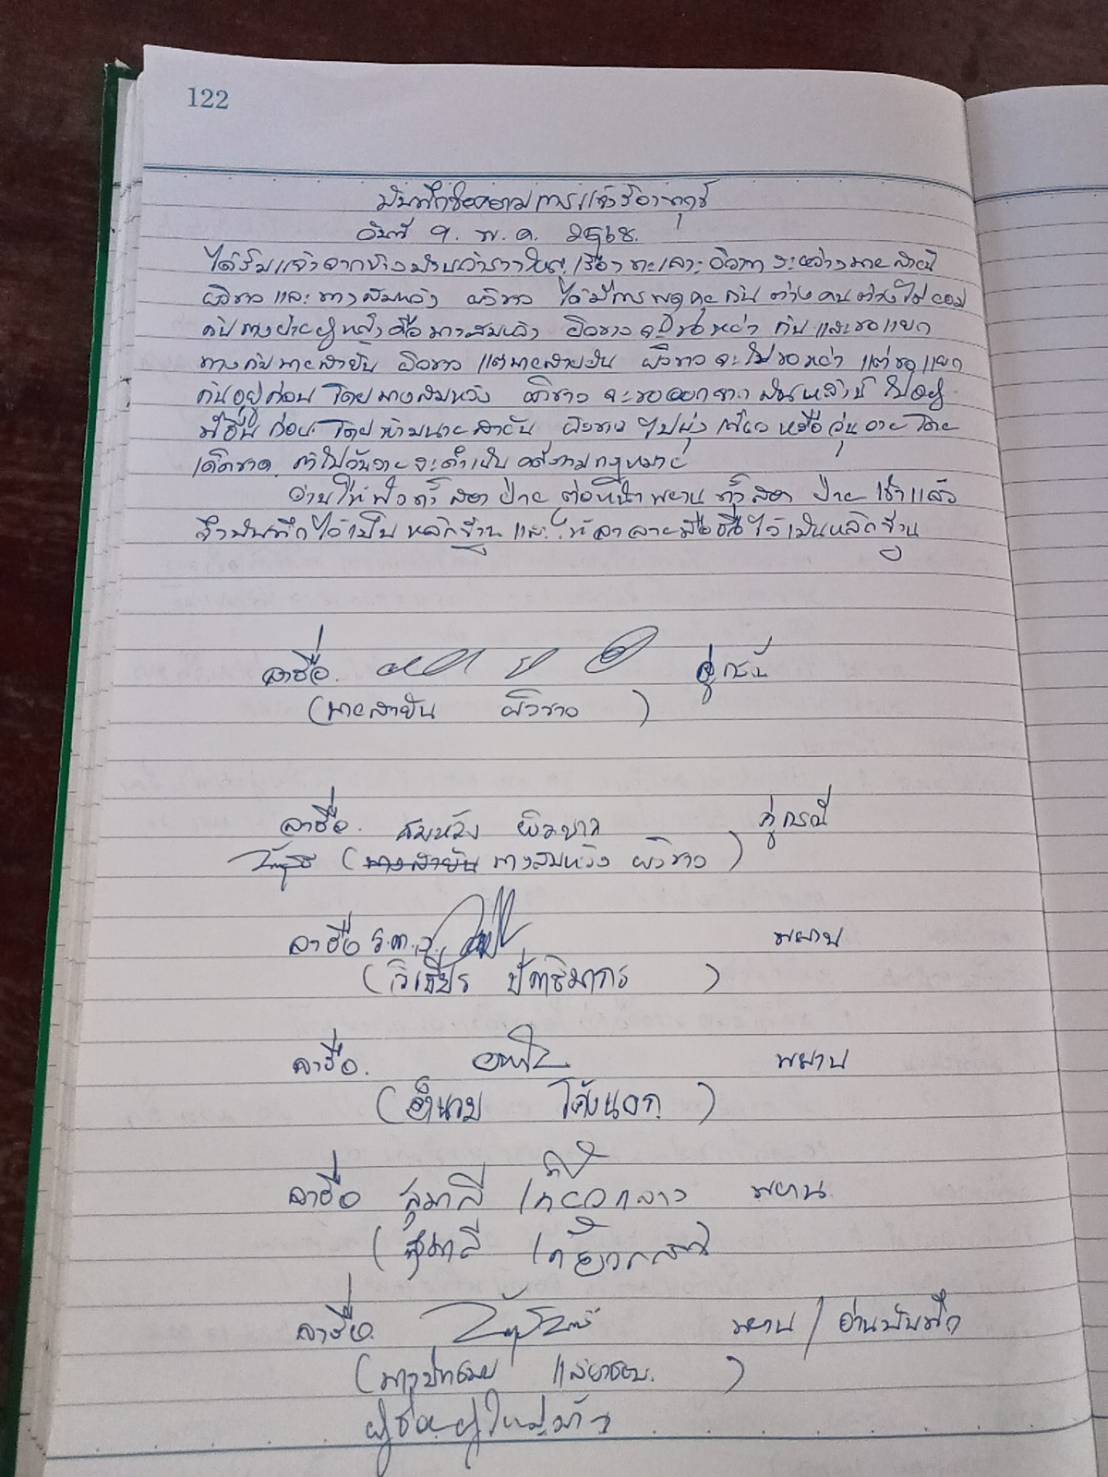 122
บันทึกข้อความการแจ้งร้องทุกข์
วันที่ 9. พ.ค. 2568.
ได้รับแจ้งจากทาง เรื่องทะเลาะวิวาทระหว่างนายสายัน
ผิวขาว และนางสมหวัง ผิวขาว ได้มีการพูดคุยกัน ต่างคนต่างไม่ยอม
กันทางฝ่ายผู้หญิงคือนางสมหวัง ผิวขาว จะขอหย่า กันและขอแยก
ทางกับนายสายัน ผิวขาว แต่นายสายัน ผิวขาว จะไม่ขอหย่า แต่ขอแยก
กันอยู่ก่อน โดยนางสมหวัง ผิวขาว จะขอออกจากบ้านหลังนี้ ไปอยู่
ที่อื่นก่อน โดยห้ามนายสายัน ผิวขาว ไปยุ่งเกี่ยว หรือวุ่นวาย โดย
เด็ดขาด ถ้าไปวุ่นวายจะดำเนินคดีตามกฎหมาย
อ่านให้ฟังทั้งสองฝ่าย ต่อหน้าพยานทั้งสองฝ่าย แล้ว
จึงบันทึกไว้เป็นหลักฐาน และให้ลงลายมือชื่อไว้เป็นหลักฐาน
ลงชื่อ. คู่กรณี
(นายสายัน ผิวขาว)
ลงชื่อ. สมหวัง ผิวขาว คู่กรณี
(นางสายัน นางสมหวัง ผิวขาว)
ลงชื่อ ร.ต.ว. พยาน
(วิเชียร ปัจฉิมากร)
ลงชื่อ. พยาน
(อำนวย โค้งนอก)
ลงชื่อ สุมาลี เกี้ยวกลาง พยาน
(สุมาลี เกี้ยวกลาง)
ลงชื่อ. พยาน/อ่านบันทึก
ผู้ช่วยผู้ใหญ่บ้าน